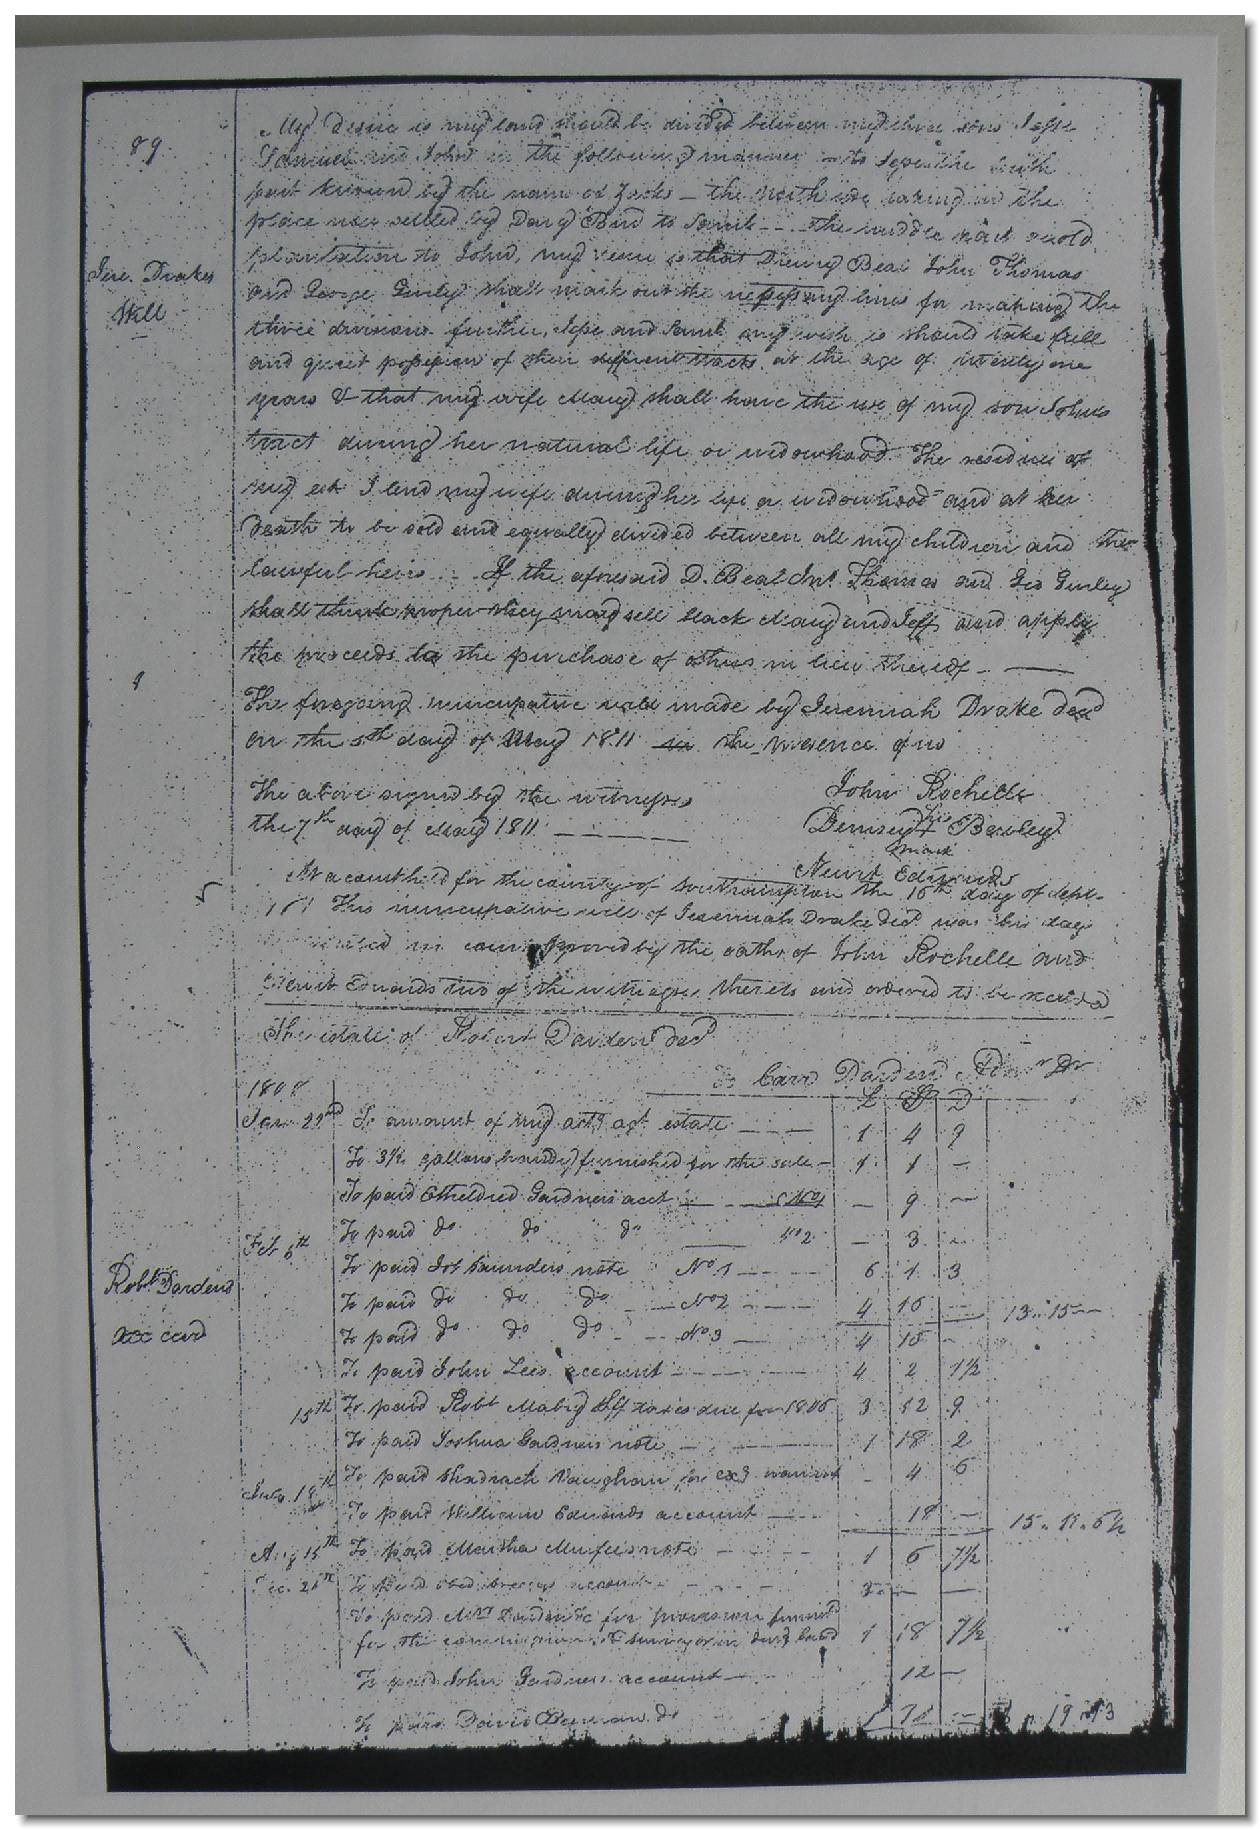 89
Jere. Drakes
Will
My Desire is my land should be divided between my three sons Jesse
Samuel and John in the following manner to Jesse the south
part known by the name of — the North side taking in the
place now settled by Davy Bird to Saml -- the middle part & old
plantation to John, my desire is that Drewry Beal John Thomas
and George Gurley shall mark out the necessary lines for making the
three divisions further, Jesse and Saml my wish is should take full
and quiet possession of their different tracts at the age of twenty one
years & that my wife Mary shall have the use of my son Johns
tract during her natural life or widowhood The residue of
my est I lend my wife during her life or widowhood and at her
death to be sold and equally divided between all my children and their
lawful heirs -- If the aforesaid D. Beal Jno. Thomas and Geo Gurley
shall think proper they may sell black Mary and Jeff and apply
the proceeds to the purchase of others in lieu thereof —
The foregoing nuncupative will made by Jeremiah Drake decd
on the 5th day of May 1811 in the presence of us
The above signed by the witnesses
the 7th day of May 1811 ———
John Rochelle
Demsey his + mark Bewley
Newit Edwards
At a court held for the county of Southampton the 16th day of Sept.
This nuncupative will of Jeremiah Drake decd was this day
in court proved by the oaths of John Rochelle and
Newit Edwards two of the witnesses thereto and ordered to be recorded
The estate of Robert Darden decd
To Carr Darden Admr Dr
1808 L S D
Robt. Dardens
account
Jan 22nd To amount of my acct agt estate --- 1 4 9
To 3½ gallons brandy furnished for the sale - 1 1 —
To paid Etheldred Gardners acct — No 1 — 9 —
Feb 6th To paid do do do — No 2 — 3 —
To paid Jos Saunders note No 1 --- 6 1 3
To paid do do do -- No 2 --- 4 16 — 13..15—
To paid do do do -- No 3 — 4 15 -
To paid John Lees account --- 4 2 7½
15th To paid Robt Mabry Shff taxes due for 1806 3 12 9
To paid Joshua Gardners note --- 1 18 2
July 18th To paid Shadrach Vaughan for exg warrant - 4 6
To paid William Edwards account --- 18 — 15..11..6½
Aug 15th To paid Martha Murfees note --- 1 6 7½
Dec. 26th To paid account - 3 — —
To paid Mrs Darden for provision furnd
for the commissioners & surveyor in land 1 18 7½
To paid John Gardners account — 12 —
To paid David do
19 .. 3